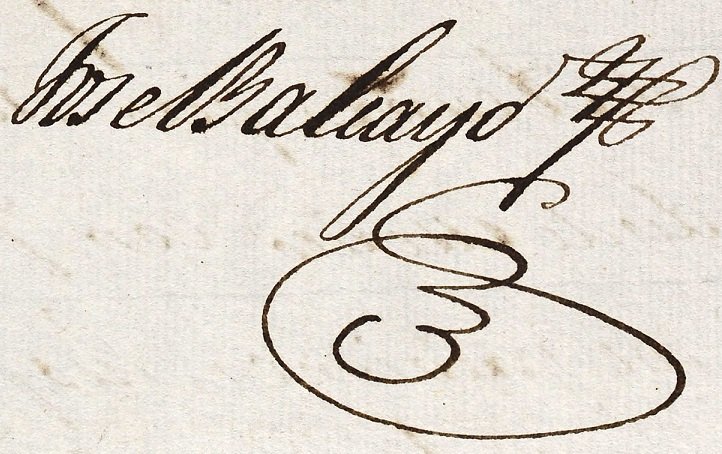 Jose Balcayo